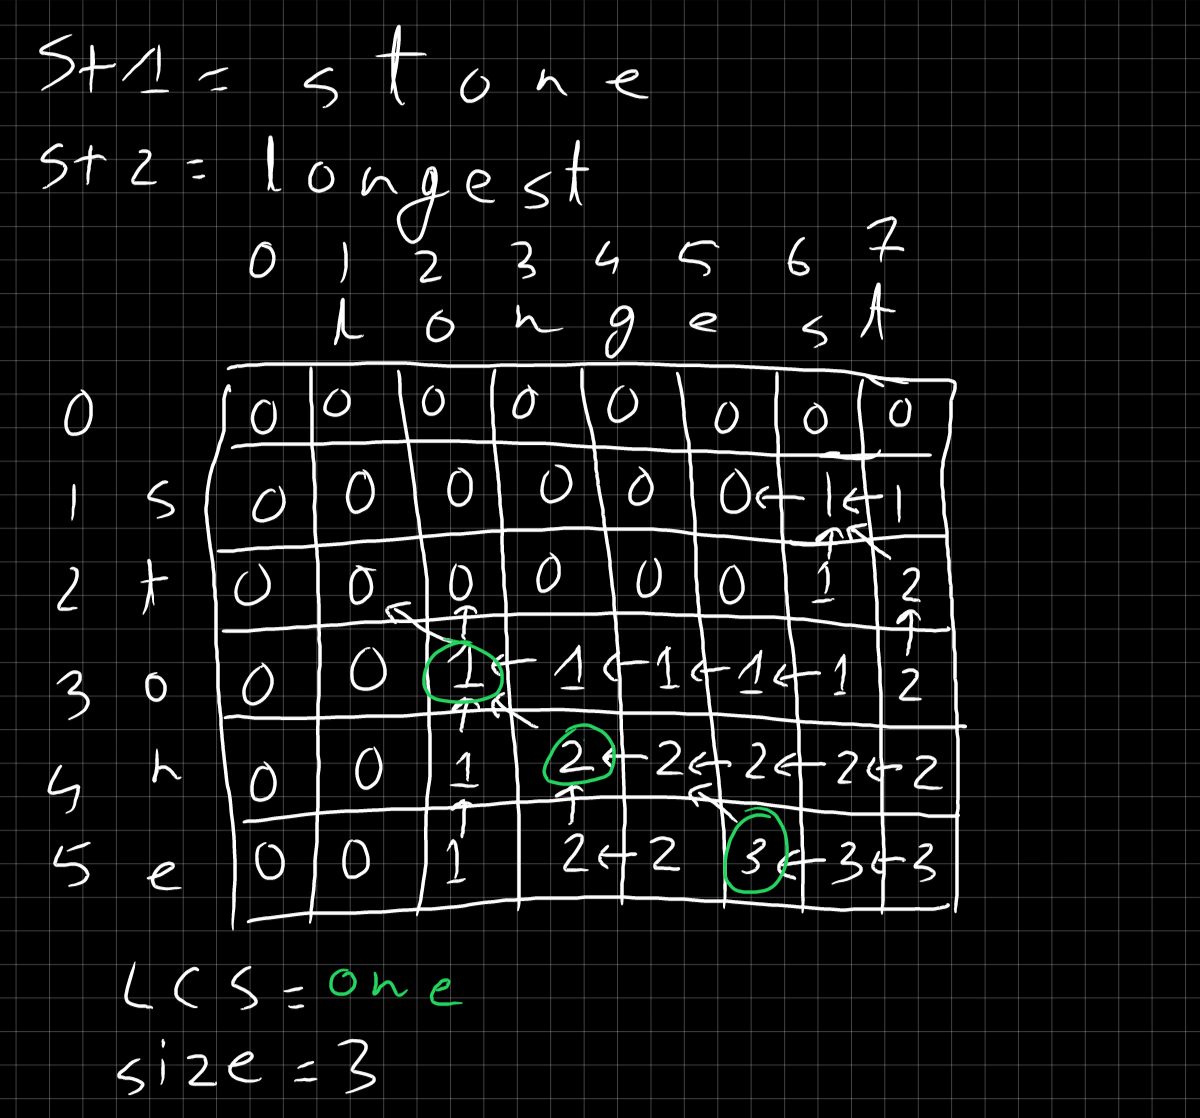 St1 = stone
St2 = longest
0 1 2 3 4 5 6 7
l o n g e s t
0 0 0 0 0 0 0 0 0
1 s 0 0 0 0 0 0 ← 1 ← 1
2 t 0 0 0 0 0 0 1 2
3 o 0 0 1 ← 1 ← 1 ← 1 ← 1 2
4 n 0 0 1 2 ← 2 ← 2 ← 2 ← 2
5 e 0 0 1 2 ← 2 3 ← 3 ← 3
LCS = one
size = 3